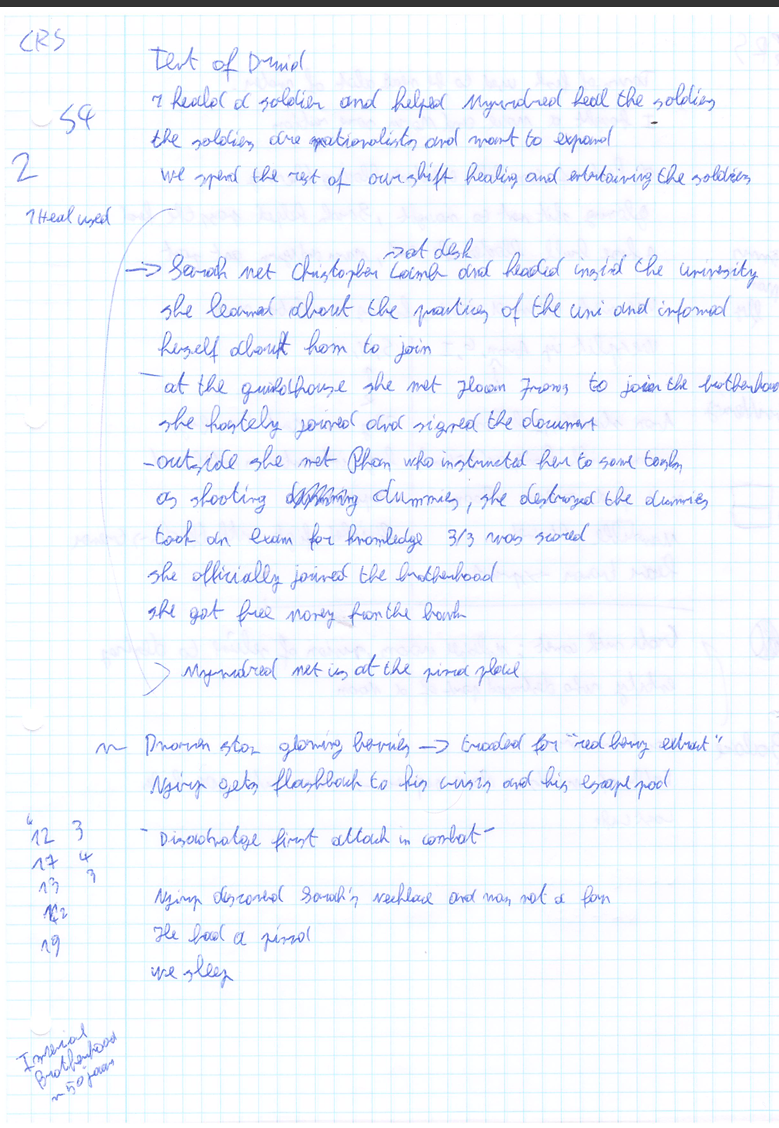 CRS
Tent of Druid
54
2
I heald a soldier and helped Mymdred heal the soldiers
the soldiers are nationalists and want to expand
we spend the rest of our shift healing and entertaining the soldiers
1 Heal used
→ at desk
→ Sarah met Christopher Lamb and headed insid the university
she learned about the practices of the uni and informed
herself about how to join
- at the guildhouse she met to join the brotherhood
she hastely joined and signed the document
- outside she met Phan who instructed her to some tasks
as shooting dummies, she destroyed the dummies
took an exam for knowledge 3/3 was scored
she officially joined the brotherhood
she got free money from the bank
> Mymdred met us at the pizza place
~ glowing berries → traded for "red berry extract"
gets flashback to his crisis and his escape pod
12 3
17 4
13 3
12
19
- Disadvatage first attack in combat -
Sarah's necklace and was not a fan
He had a
we sleep
Imperial
Brotherhood
~ 50 jaar